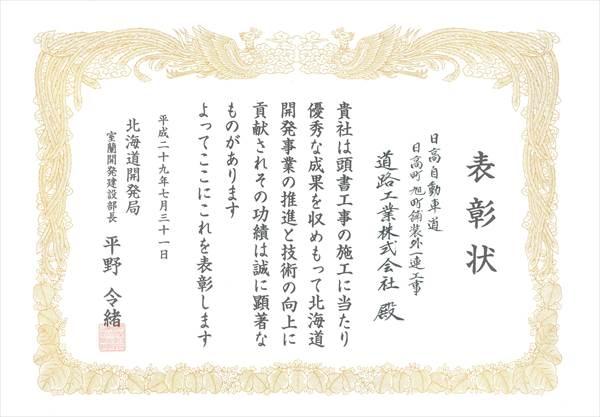 表彰状
日高自動車道
日高町旭町舗装外一連工事
道路工業株式会社 殿
貴社は頭書工事の施工に当たり
優秀な成果を収めもって北海道
開発事業の推進と技術の向上に
貢献されその功績は誠に顕著な
ものがあります
よってここにこれを表彰します
平成二十九年七月三十一日
北海道開発局
室蘭開発建設部長 平野令緒